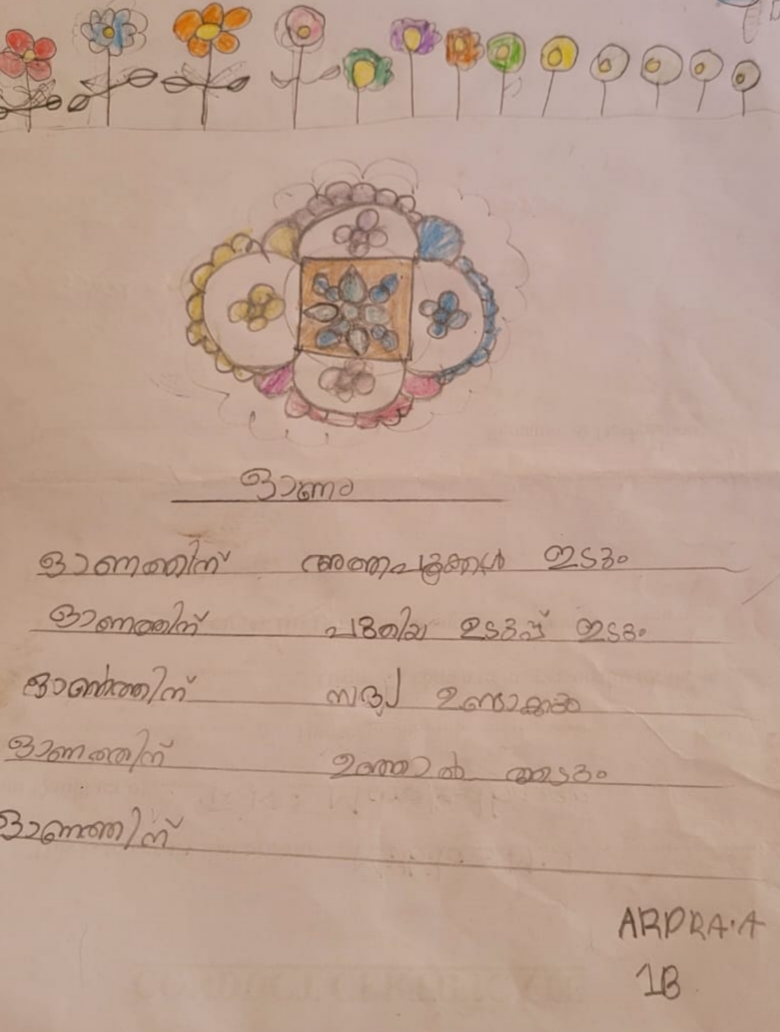 ഓണം
ഓണത്തിന് അത്തപൂക്കൾ ഇടും
ഓണത്തിന് പുതിയ ഉടുപ്പ് ഇടും
ഓണത്തിന് സദ്യ ഉണ്ടാക്കും
ഓണത്തിന് ഊഞ്ഞാൽ ആടും
ഓണത്തിന്
ARDRA.A
1B